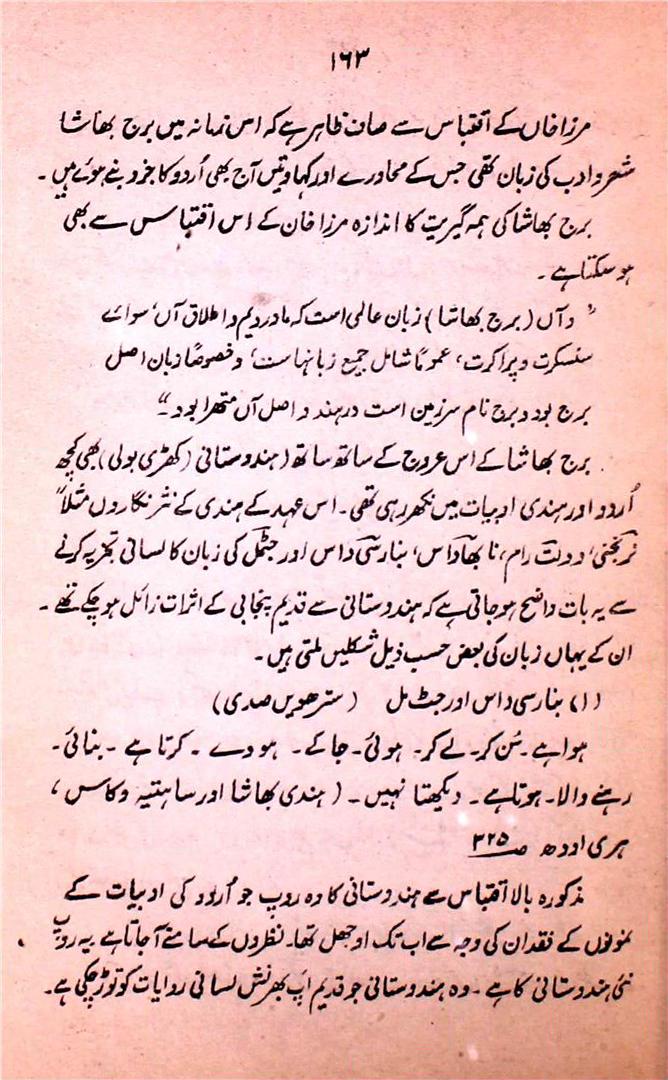 ۱۶۳
مرزا خاں کے اقتباس سے صاف ظاہر ہے کہ اس زمانہ میں برج بھاشا
شعر و ادب کی زبان تھی جس کے محاورے اور کہاوتیں آج بھی اُردو کا جزو بنے ہوئے ہیں ۔
برج بھاشا کی ہمہ گیریت کا اندازہ مرزا خان کے اس اقتباس سے بھی
ہو سکتا ہے ۔
” و آں (برج بھاشا) زبان عالمی است کہ مادردیم و اطلاق آں، سوائے
سنسکرت و پراکرت، عموماً شامل جمیع زبانہاست، و خصوصاً زبان اصل
برج بود و برج نام سرزمین است در ہند و اصل آں متھرا بود ۔“
برج بھاشا کے اس عروج کے ساتھ ساتھ (ہندوستانی (کھڑی بولی) بھی کچھ
اُردو اور ہندی ادبیات میں نکھر رہی تھی ۔ اس عہد کے ہندی کے نثر نگاروں مثلاً
نرنجنی، دولت رام، نابھا داس، بنارسی داس اور جٹمل کی زبان کا لسانی تجزیہ کرنے
سے یہ بات واضح ہو جاتی ہے کہ ہندوستانی سے قدیم پنجابی کے اثرات زائل ہو چکے تھے ۔
ان کے یہاں زبان کی بعض حسب ذیل شکلیں ملتی ہیں ۔
(۱) بنارسی داس اور جٹ مل (سترھویں صدی)
ہوا ہے ۔ سُن کر ۔ لے کر ۔ ہوئی ۔ جا کے ۔ ہووے ۔ کرتا ہے ۔ بنائی ۔
رہنے والا ۔ ہوتا ہے ۔ دیکھتا نہیں ۔ (ہندی بھاشا اور ساہتیہ وکاس ،
ہری اودھ ص ۳۲۵
مذکورہ بالا اقتباس سے ہندوستانی کا وہ روپ جو اُردو کی ادبیات کے
نمونوں کے فقدان کی وجہ سے اب تک اوجھل تھا ۔ نظروں کے سامنے آ جاتا ہے یہ روپ
نئی ہندوستانی کا ہے ۔ وہ ہندوستانی جو قدیم اپ بھرنش لسانی روایات کو توڑ چکی ہے ۔